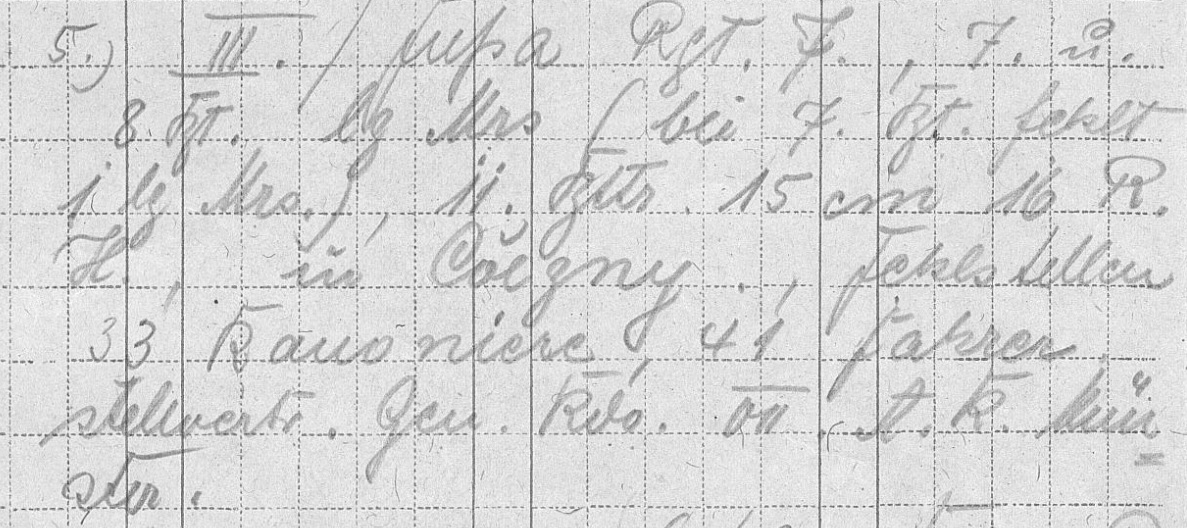 5.) III. / Fußa Rgt. 7., 7. u.
8. Bt. lg Mrs ( bei 7. Bt. fehlt
1 lg Mrs.), 11. Bttr. 15 cm 16 R.
H., in Coëgny., Fehlstellen
33 Kanoniere, 41 Fahrer,
stellvertr. Gen. Kdo. VII. A. K. Mün
ster.